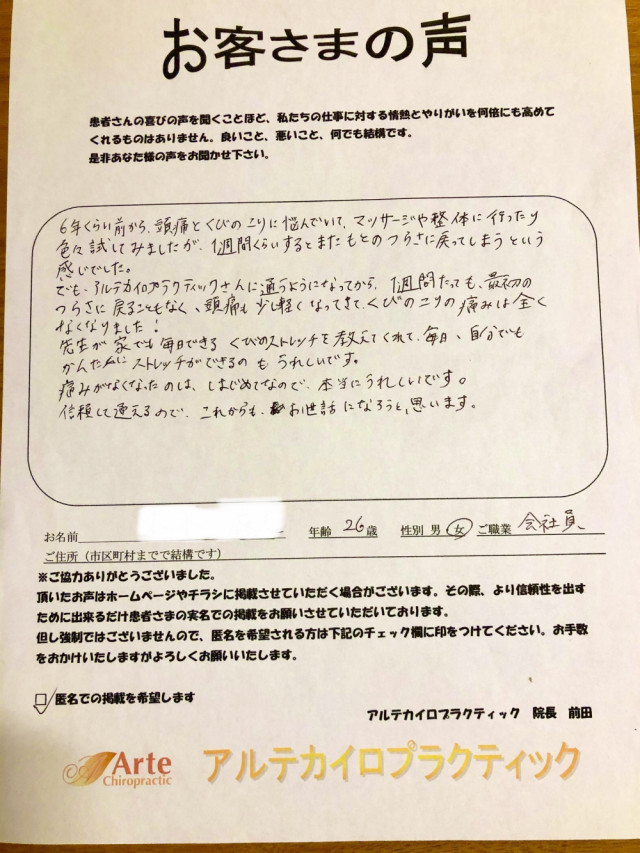 お客さまの声
患者さんの喜びの声を聞くことほど、私たちの仕事に対する情熱とやりがいを何倍にも高めて
くれるものはありません。良いこと、悪いこと、何でも結構です。
是非あなた様の声をお聞かせ下さい。
6年くらい前から、頭痛とくびのこりに悩んでいて、マッサージや整体に行ったり
色々試してみましたが、1週間くらいするとまたもとのつらさに戻ってしまうという
感じでした。
でも、アルテカイロプラクティックさんに通うようになってから、1週間たっても、最初の
つらさに戻ることもなく、頭痛も少し軽くなってきて、くびのこりの痛みは全く
なくなりました!
先生が家でも毎日できるくびのストレッチを教えてくれて、毎日、自分でも
かんたんにストレッチができるのもうれしいです。
痛みがなくなったのは、はじめてなので、本当にうれしいです。
信頼して通えるので、これからも、お世話になろうと思います。
お名前 年齢 26歳 性別 男 女 ご職業 会社員
ご住所(市区町村までで結構です)
※ご協力ありがとうございました。
頂いたお声はホームページやチラシに掲載させていただく場合がございます。その際、より信頼性を出す
ために出来るだけ患者さまの実名での掲載をお願いさせていただいております。
但し強制ではございませんので、匿名を希望される方は下記のチェック欄に印をつけてください。お手数
をおかけいたしますがよろしくお願いいたします。
□匿名での掲載を希望します
アルテカイロプラクティック 院長 前田
Arte
Chiropractic
アルテカイロプラクティック